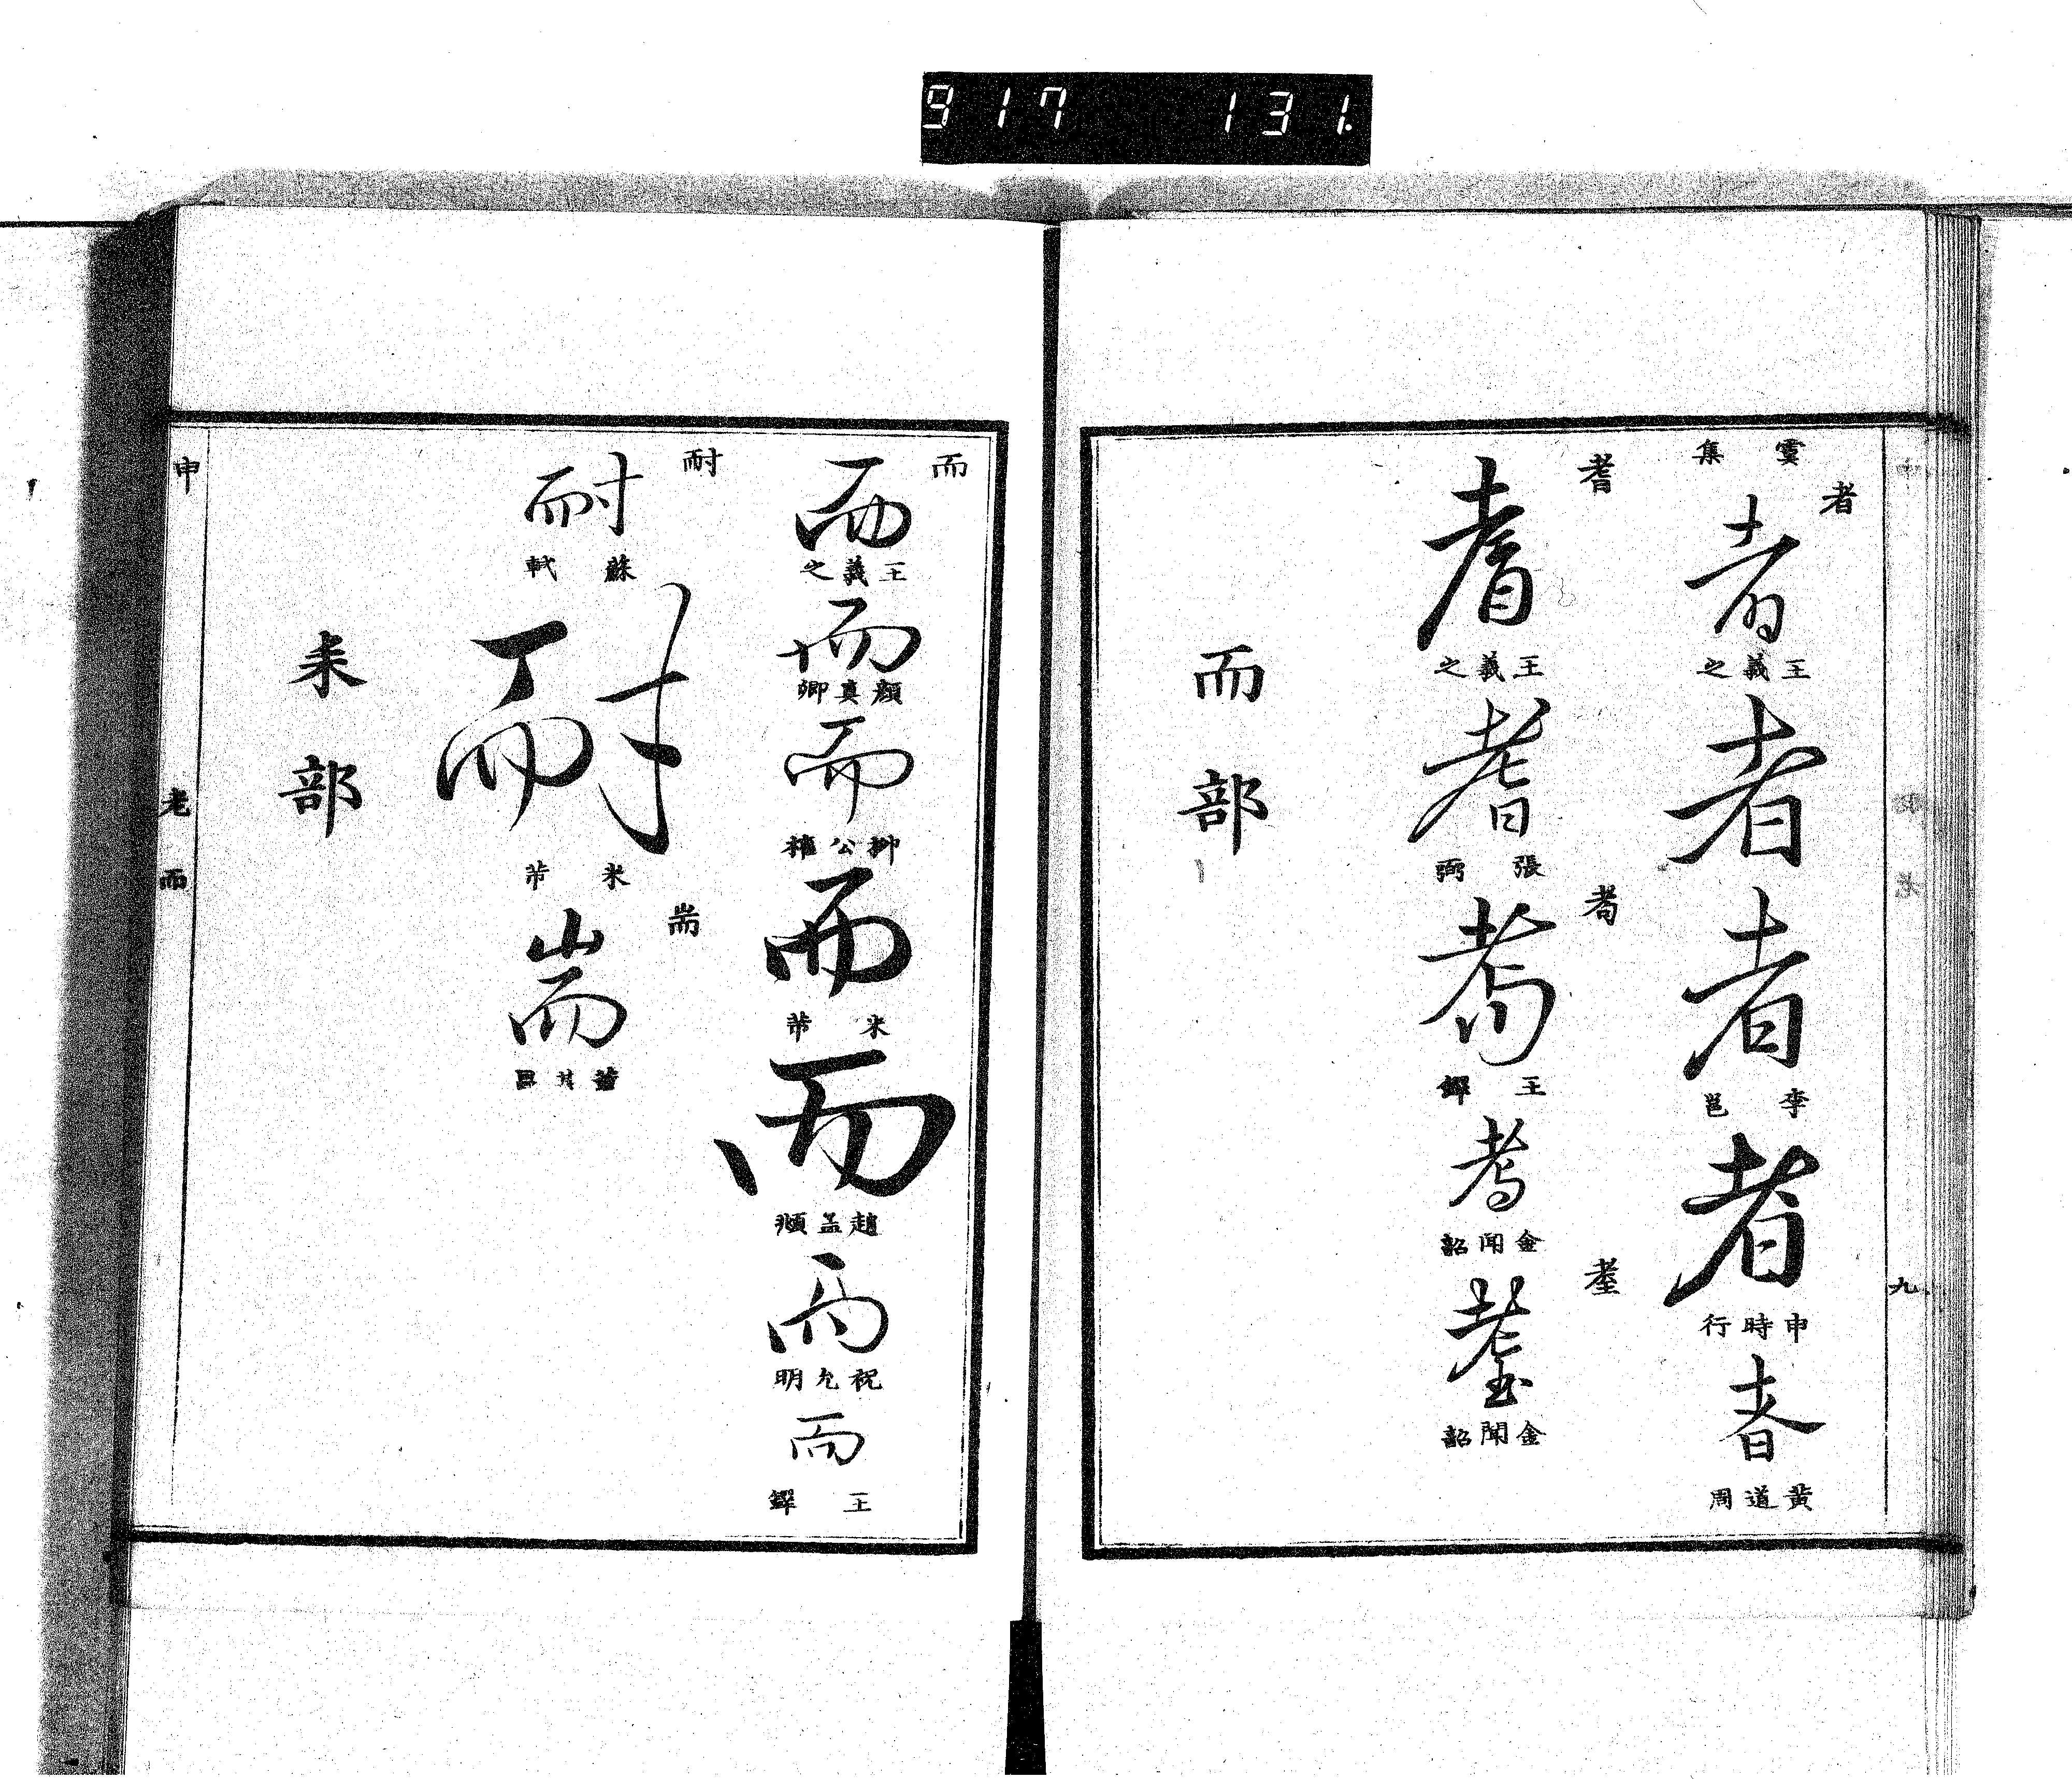 917 131.
九
虞集
者
者
王羲之
者
者
李邕
者
申時行
者
黃道周
耆
耆
王羲之
耆
張弼
耇
耇
王鐸
耇
金聞韶
耋
耋
金聞韶
而部
而
而
王羲之
而
顏真卿
而
柳公權
而
米芾
而
趙孟頫
而
祝允明
而
王鐸
耐
耐
蘇軾
耐
米芾
耑
耑
董其昌
耒部
申 老 而